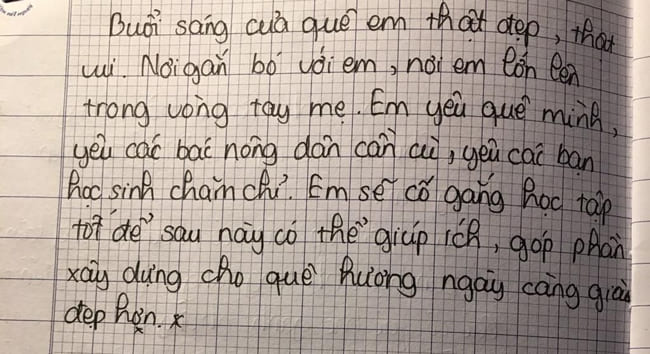 Buổi sáng của quê em thật đẹp, thật
vui. Nơi gắn bó với em, nơi em lớn lên
trong vòng tay mẹ. Em yêu quê mình,
yêu các bác nông dân cần cù, yêu các bạn
học sinh chăm chỉ. Em sẽ cố gắng học tập
tốt để sau này có thể giúp ích, góp phần
xây dựng cho quê hương ngày càng giàu
đẹp hơn. x
x